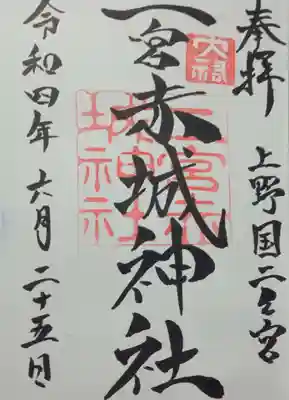 奉拝
上野国二之宮
二宮赤城神社
令和四年六月二十五日